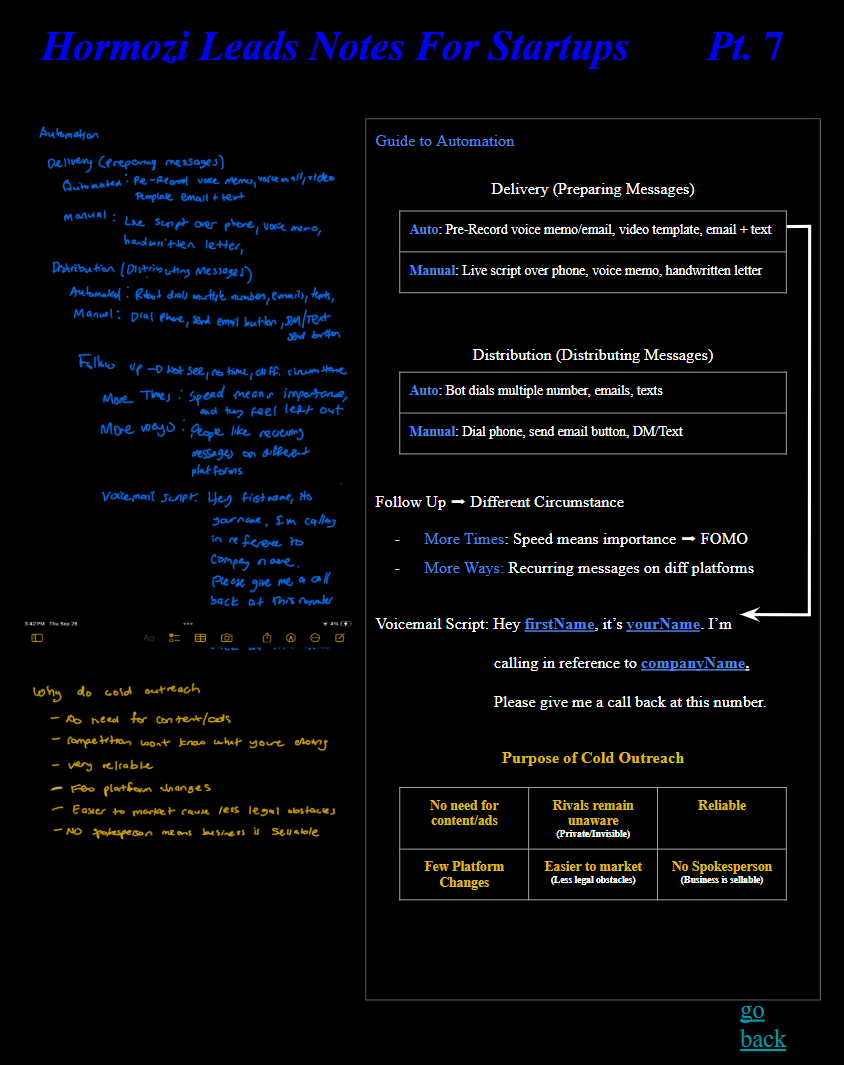 Hormozi Leads Notes For Startups Pt. 7
Automation
Delivery (preparing messages)
Automated: Pre-Record voice memo, voicemail, video
template email + text
Manual: Live script over phone, voice memo,
handwritten letter,
Distribution (Distributing Messages)
Automated: Robot dials multiple numbers, emails, texts,
Manual: Dial phone, send email button, DM/Text
send button
Follow up → not see, no time, diff. circumstance
More Times: Speed means importance,
and they feel left out
More ways: People like recieving
messages on different
platforms
Voicemail script: Hey firstname, its
yourname. I'm calling
in reference to
company name.
Please give me a call
back at this number
3:42 PM Thu Sep 26
4%
Aa
Why do cold outreach
- No need for content/ads
- Competition wont know what youre doing
- very reliable
- Few platform changes
- Easier to market cause less legal obstacles
- NO spokesperson means business is sellable
Guide to Automation
Delivery (Preparing Messages)
Auto: Pre-Record voice memo/email, video template, email + text
Manual: Live script over phone, voice memo, handwritten letter
Distribution (Distributing Messages)
Auto: Bot dials multiple number, emails, texts
Manual: Dial phone, send email button, DM/Text
Follow Up ➞ Different Circumstance
- More Times: Speed means importance ➞ FOMO
- More Ways: Recurring messages on diff platforms
Voicemail Script: Hey firstName, it's yourName. I'm
calling in reference to companyName.
Please give me a call back at this number.
Purpose of Cold Outreach
No need for
content/ads
Rivals remain
unaware
(Private/Invisible)
Reliable
Few Platform
Changes
Easier to market
(Less legal obstacles)
No Spokesperson
(Business is sellable)
go
back